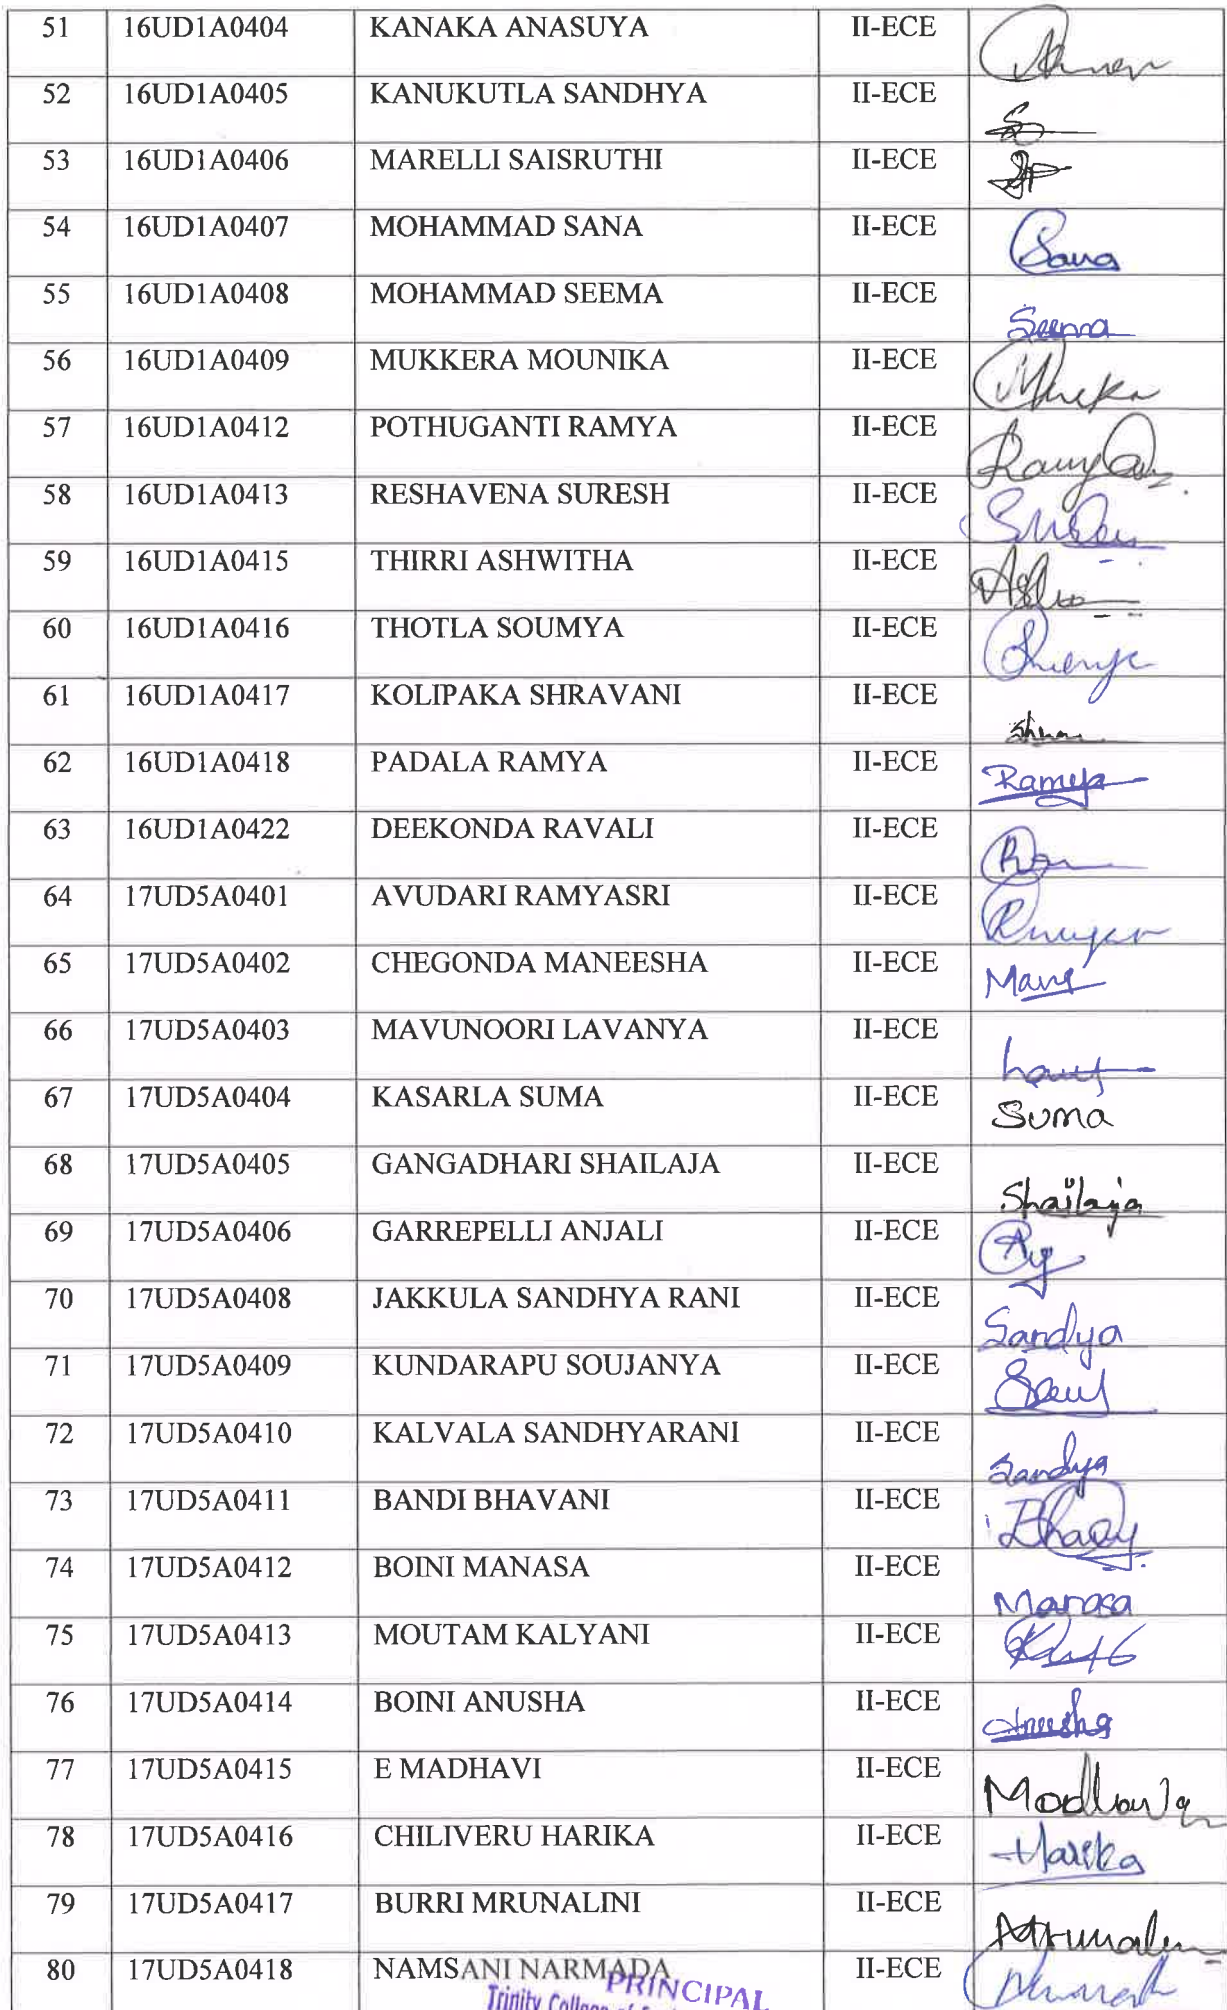 51 16UD1A0404 KANAKA ANASUYA II-ECE
52 16UD1A0405 KANUKUTLA SANDHYA II-ECE
53 16UD1A0406 MARELLI SAISRUTHI II-ECE
54 16UD1A0407 MOHAMMAD SANA II-ECE Sana
55 16UD1A0408 MOHAMMAD SEEMA II-ECE Seema
56 16UD1A0409 MUKKERA MOUNIKA II-ECE
57 16UD1A0412 POTHUGANTI RAMYA II-ECE
58 16UD1A0413 RESHAVENA SURESH II-ECE
59 16UD1A0415 THIRRI ASHWITHA II-ECE
60 16UD1A0416 THOTLA SOUMYA II-ECE
61 16UD1A0417 KOLIPAKA SHRAVANI II-ECE
62 16UD1A0418 PADALA RAMYA II-ECE Ramya
63 16UD1A0422 DEEKONDA RAVALI II-ECE
64 17UD5A0401 AVUDARI RAMYASRI II-ECE
65 17UD5A0402 CHEGONDA MANEESHA II-ECE
66 17UD5A0403 MAVUNOORI LAVANYA II-ECE
67 17UD5A0404 KASARLA SUMA II-ECE Suma
68 17UD5A0405 GANGADHARI SHAILAJA II-ECE Shailaja
69 17UD5A0406 GARREPELLI ANJALI II-ECE
70 17UD5A0408 JAKKULA SANDHYA RANI II-ECE Sandya
71 17UD5A0409 KUNDARAPU SOUJANYA II-ECE
72 17UD5A0410 KALVALA SANDHYARANI II-ECE Sandya
73 17UD5A0411 BANDI BHAVANI II-ECE
74 17UD5A0412 BOINI MANASA II-ECE Manasa
75 17UD5A0413 MOUTAM KALYANI II-ECE
76 17UD5A0414 BOINI ANUSHA II-ECE Anusha
77 17UD5A0415 E MADHAVI II-ECE
78 17UD5A0416 CHILIVERU HARIKA II-ECE Harika
79 17UD5A0417 BURRI MRUNALINI II-ECE
80 17UD5A0418 NAMSANI NARMADA II-ECE
PRINCIPAL
Trinity College of